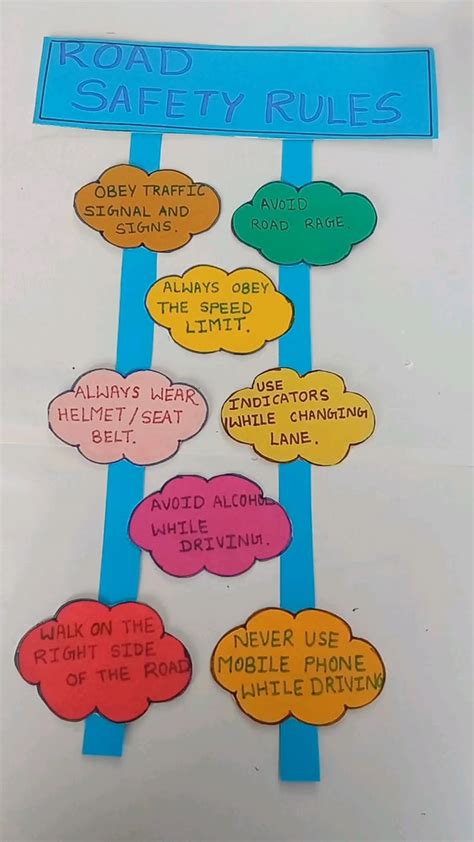 ROAD
SAFETY RULES
OBEY TRAFFIC
SIGNAL AND
SIGNS.
AVOID
ROAD RAGE
ALWAYS OBEY
THE SPEED
LIMIT.
ALWAYS WEAR
HELMET/SEAT
BELT.
USE
INDICATORS
WHILE CHANGING
LANE.
AVOID ALCOHOL
WHILE
DRIVING.
WALK ON THE
RIGHT SIDE
OF THE ROAD
NEVER USE
MOBILE PHONE
WHILE DRIVING